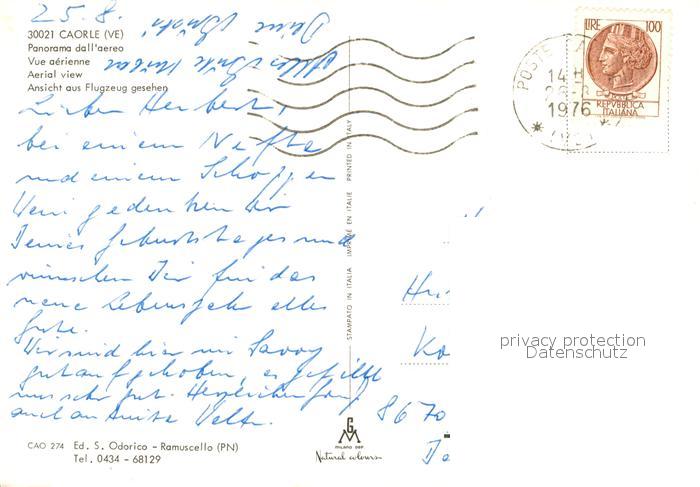 25.8.
30021 CAORLE (VE)
Panorama dall'aereo
Vue aérienne
Aerial view
Ansicht aus Flugzeug gesehen
Deine
Alles Gute
Lieber Herbert,
bei einem
und einem Schoppen
Wein gedenken wir
Deines Geburtstages und
wünschen Dir für das
neue Lebensjahr alles
Gute.
Wir sind hier im Savoy
gut aufgehoben, es gefällt
uns sehr gut. Herzlichen Gruß
auch an Anita
CAO 274 Ed. S. Odorico - Ramuscello (PN)
Tel. 0434 - 68129
STAMPATO IN ITALIA IMPRIMÉ EN ITALIE PRINTED IN ITALY
GM
MILANO DEP.
Natural colours
LIRE 100
REPVBBLICA
ITALIANA
POSTE
14 H
1976
Ko
8670
privacy protection
Datenschutz